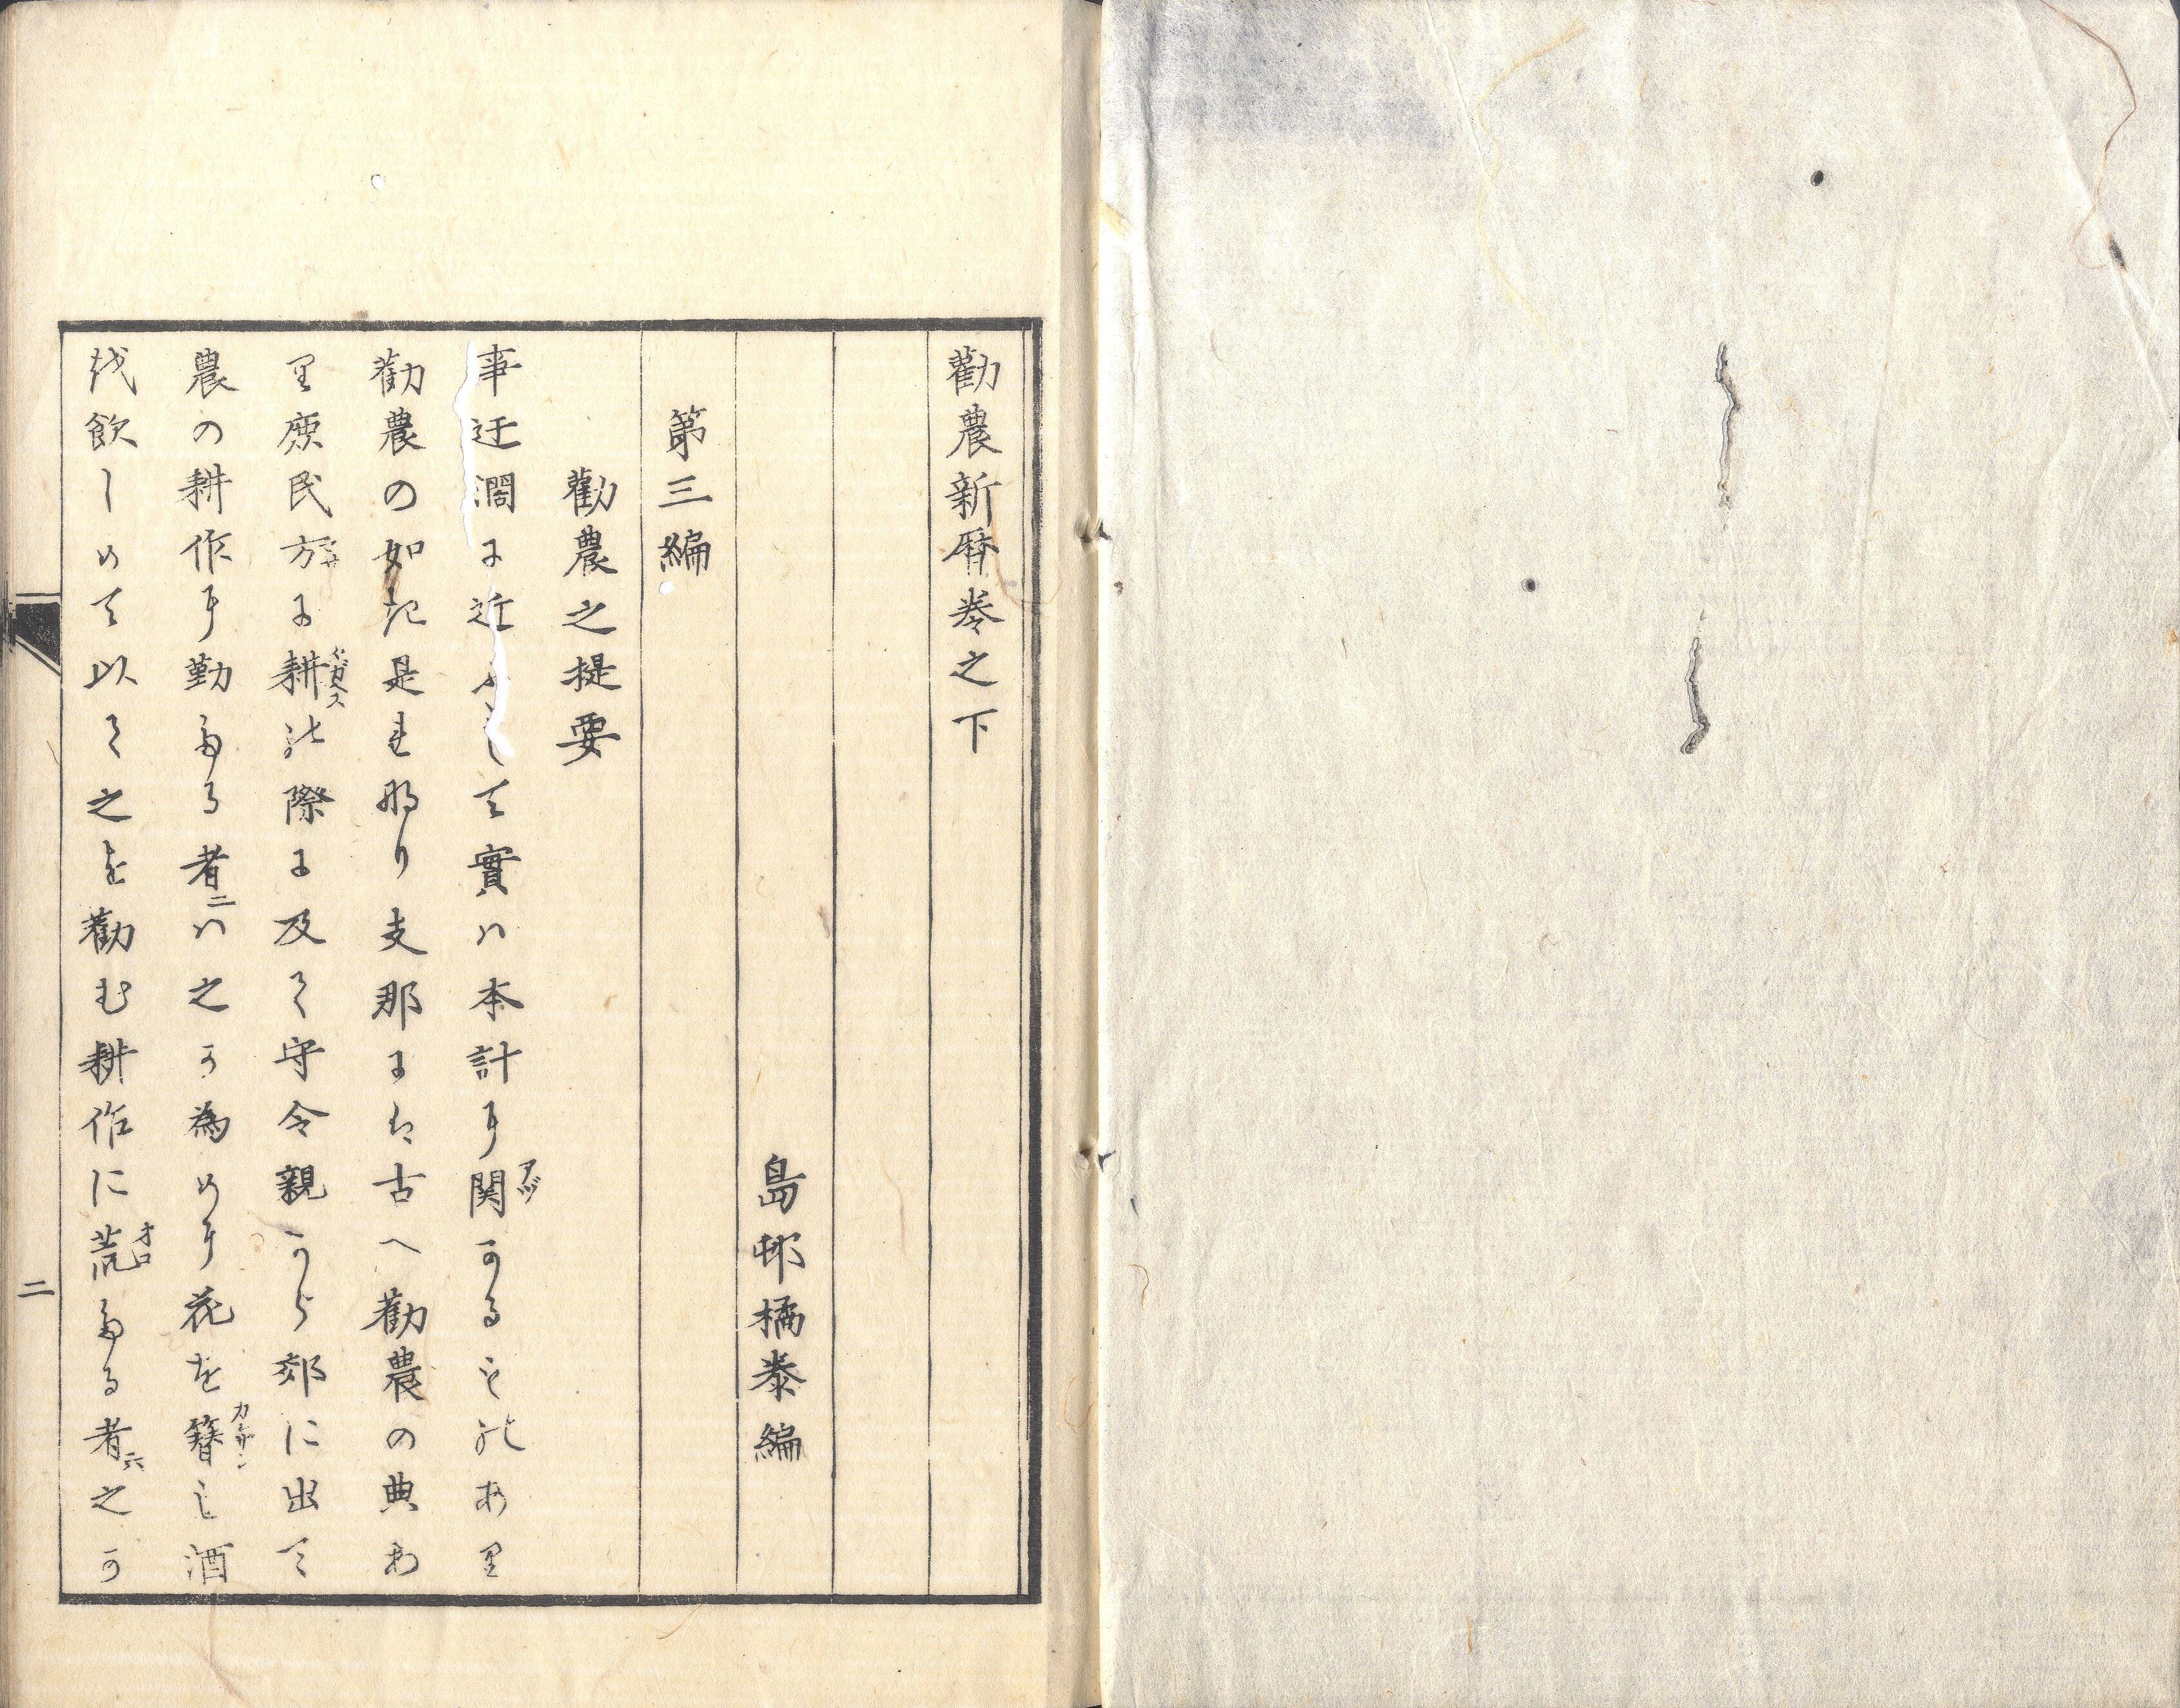 勸農新暦巻之下
島邨橘泰編
第三編
勸農之提要
事迂濶に近して實ハ本計に関かるものあり
アヅ
勸農の如き是れなり支那には古へ勸農の典あ
り庶民方に耕の際に及て守令親から郊に出て
農の耕作に勤たる者ニハ之か為めに花を簪し酒
カンザシ
を飲しめて以て之を勸む耕作に荒たる者ニハ之か
オロ
二